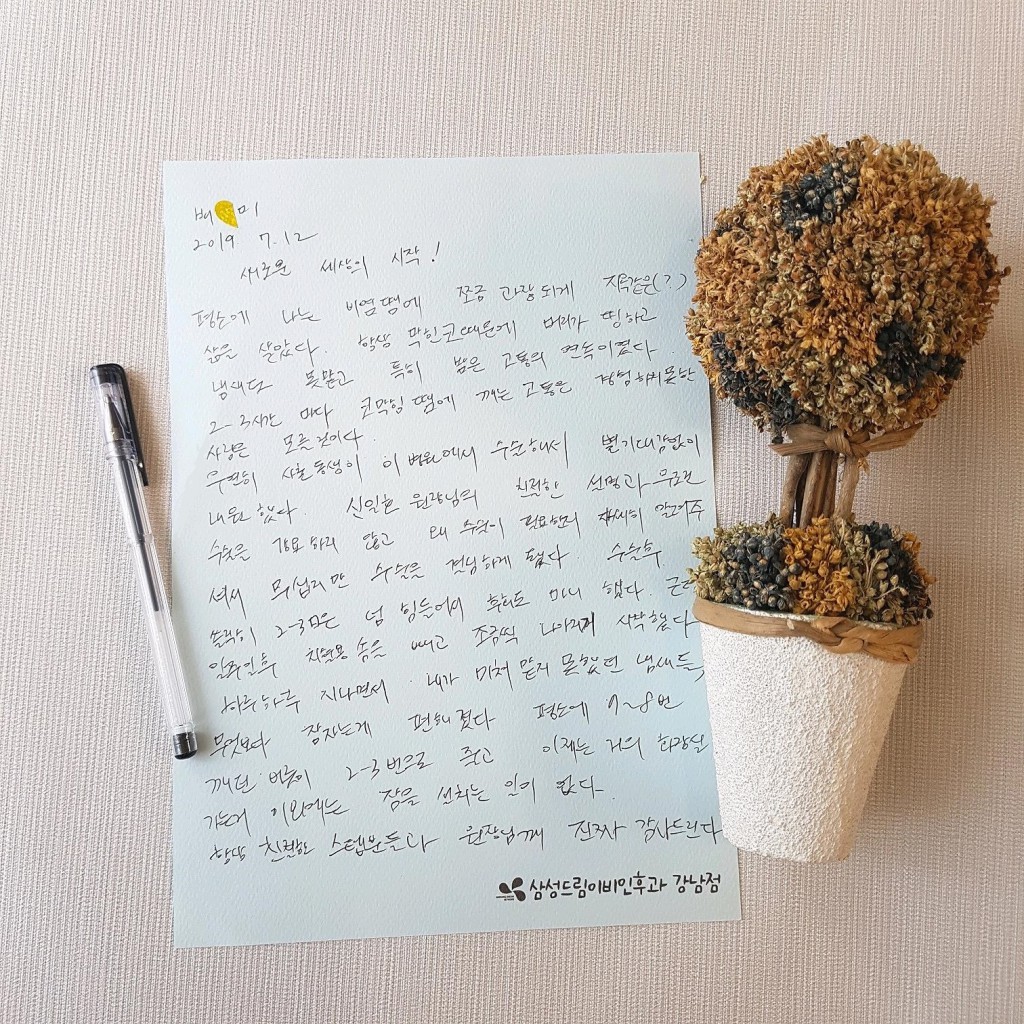 배 미
2019 7.12
새로운 세상의 시작!
평소에 나는 비염땜에 쪼금 과장되게 지옥같은(?)
삶을 살았다. 항상 막힌코때문에 머리가 띵하고
냄새다 못맡고 특히 밤은 고통의 연속이였다.
2-3시간 마다 코막힘땜에 깨는 고통은 경험하지못한
사람은 모를것이다.
우연히 사촌동생이 이 병원에서 수술해서 별기대감없이
내원했다. 신일호 원장님의 친절한 설명과 무조건
수술을 강요하지 않고 왜 수술이 필요한지 자세히 알려주
셔서 무섭지만 수술을 결심하게 됐다. 수술후
솔직히 2-3일은 넘 힘들어서 후회도 마니 했다. 근데
일주일후 지혈용 솜을 빼고 조금씩 나아지기 시작했다
하루하루 지나면서 내가 미처 맡지 못했던 냄새들,
무엇보다 잠자는게 편해졌다 평소에 7~8번
깨던 버릇이 2-3번으로 줄고 이제는 거의 화장실
가는거 이외에는 잠을 설치는 일이 없다.
항상 친절한 스텝분들과 원장님께 진짜 감사드린다
삼성드림이비인후과 강남점